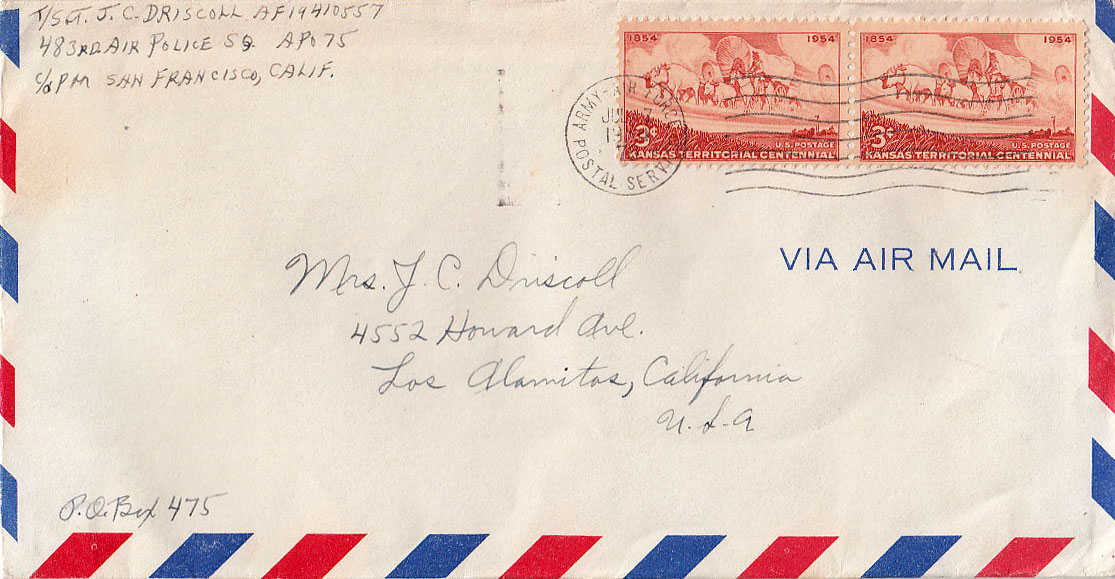 T/SGT. J. C. DRISCOLL AF19410557
483RD. AIR POLICE SQ. APO 75
C/O PM SAN FRANCISCO, CALIF.
1854 1954
3¢
U.S. POSTAGE
KANSAS TERRITORIAL CENTENNIAL
1854 1954
3¢
U.S. POSTAGE
KANSAS TERRITORIAL CENTENNIAL
ARMY-AIR FORCE
POSTAL SERV
VIA AIR MAIL
Mrs. J. C. Driscoll
4552 Howard Ave.
Los Alamitos, California
U.S.A
P.O. Box 475